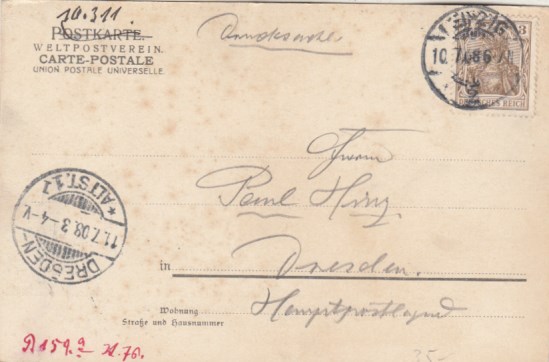 10.311.
POSTKARTE.
WELTPOSTVEREIN.
CARTE-POSTALE
UNION POSTALE UNIVERSELLE.
Drucksache
LEIPZIG
10.7.08.6-7
2
3
DEUTSCHES REICH
Herrn
Paul
in Dresden.
Hauptpostlagernd
Wohnung
Straße und Hausnummer
DRESDEN-
11.7.08.3-4-V.
*ALTST.1
R 159.9
35.-